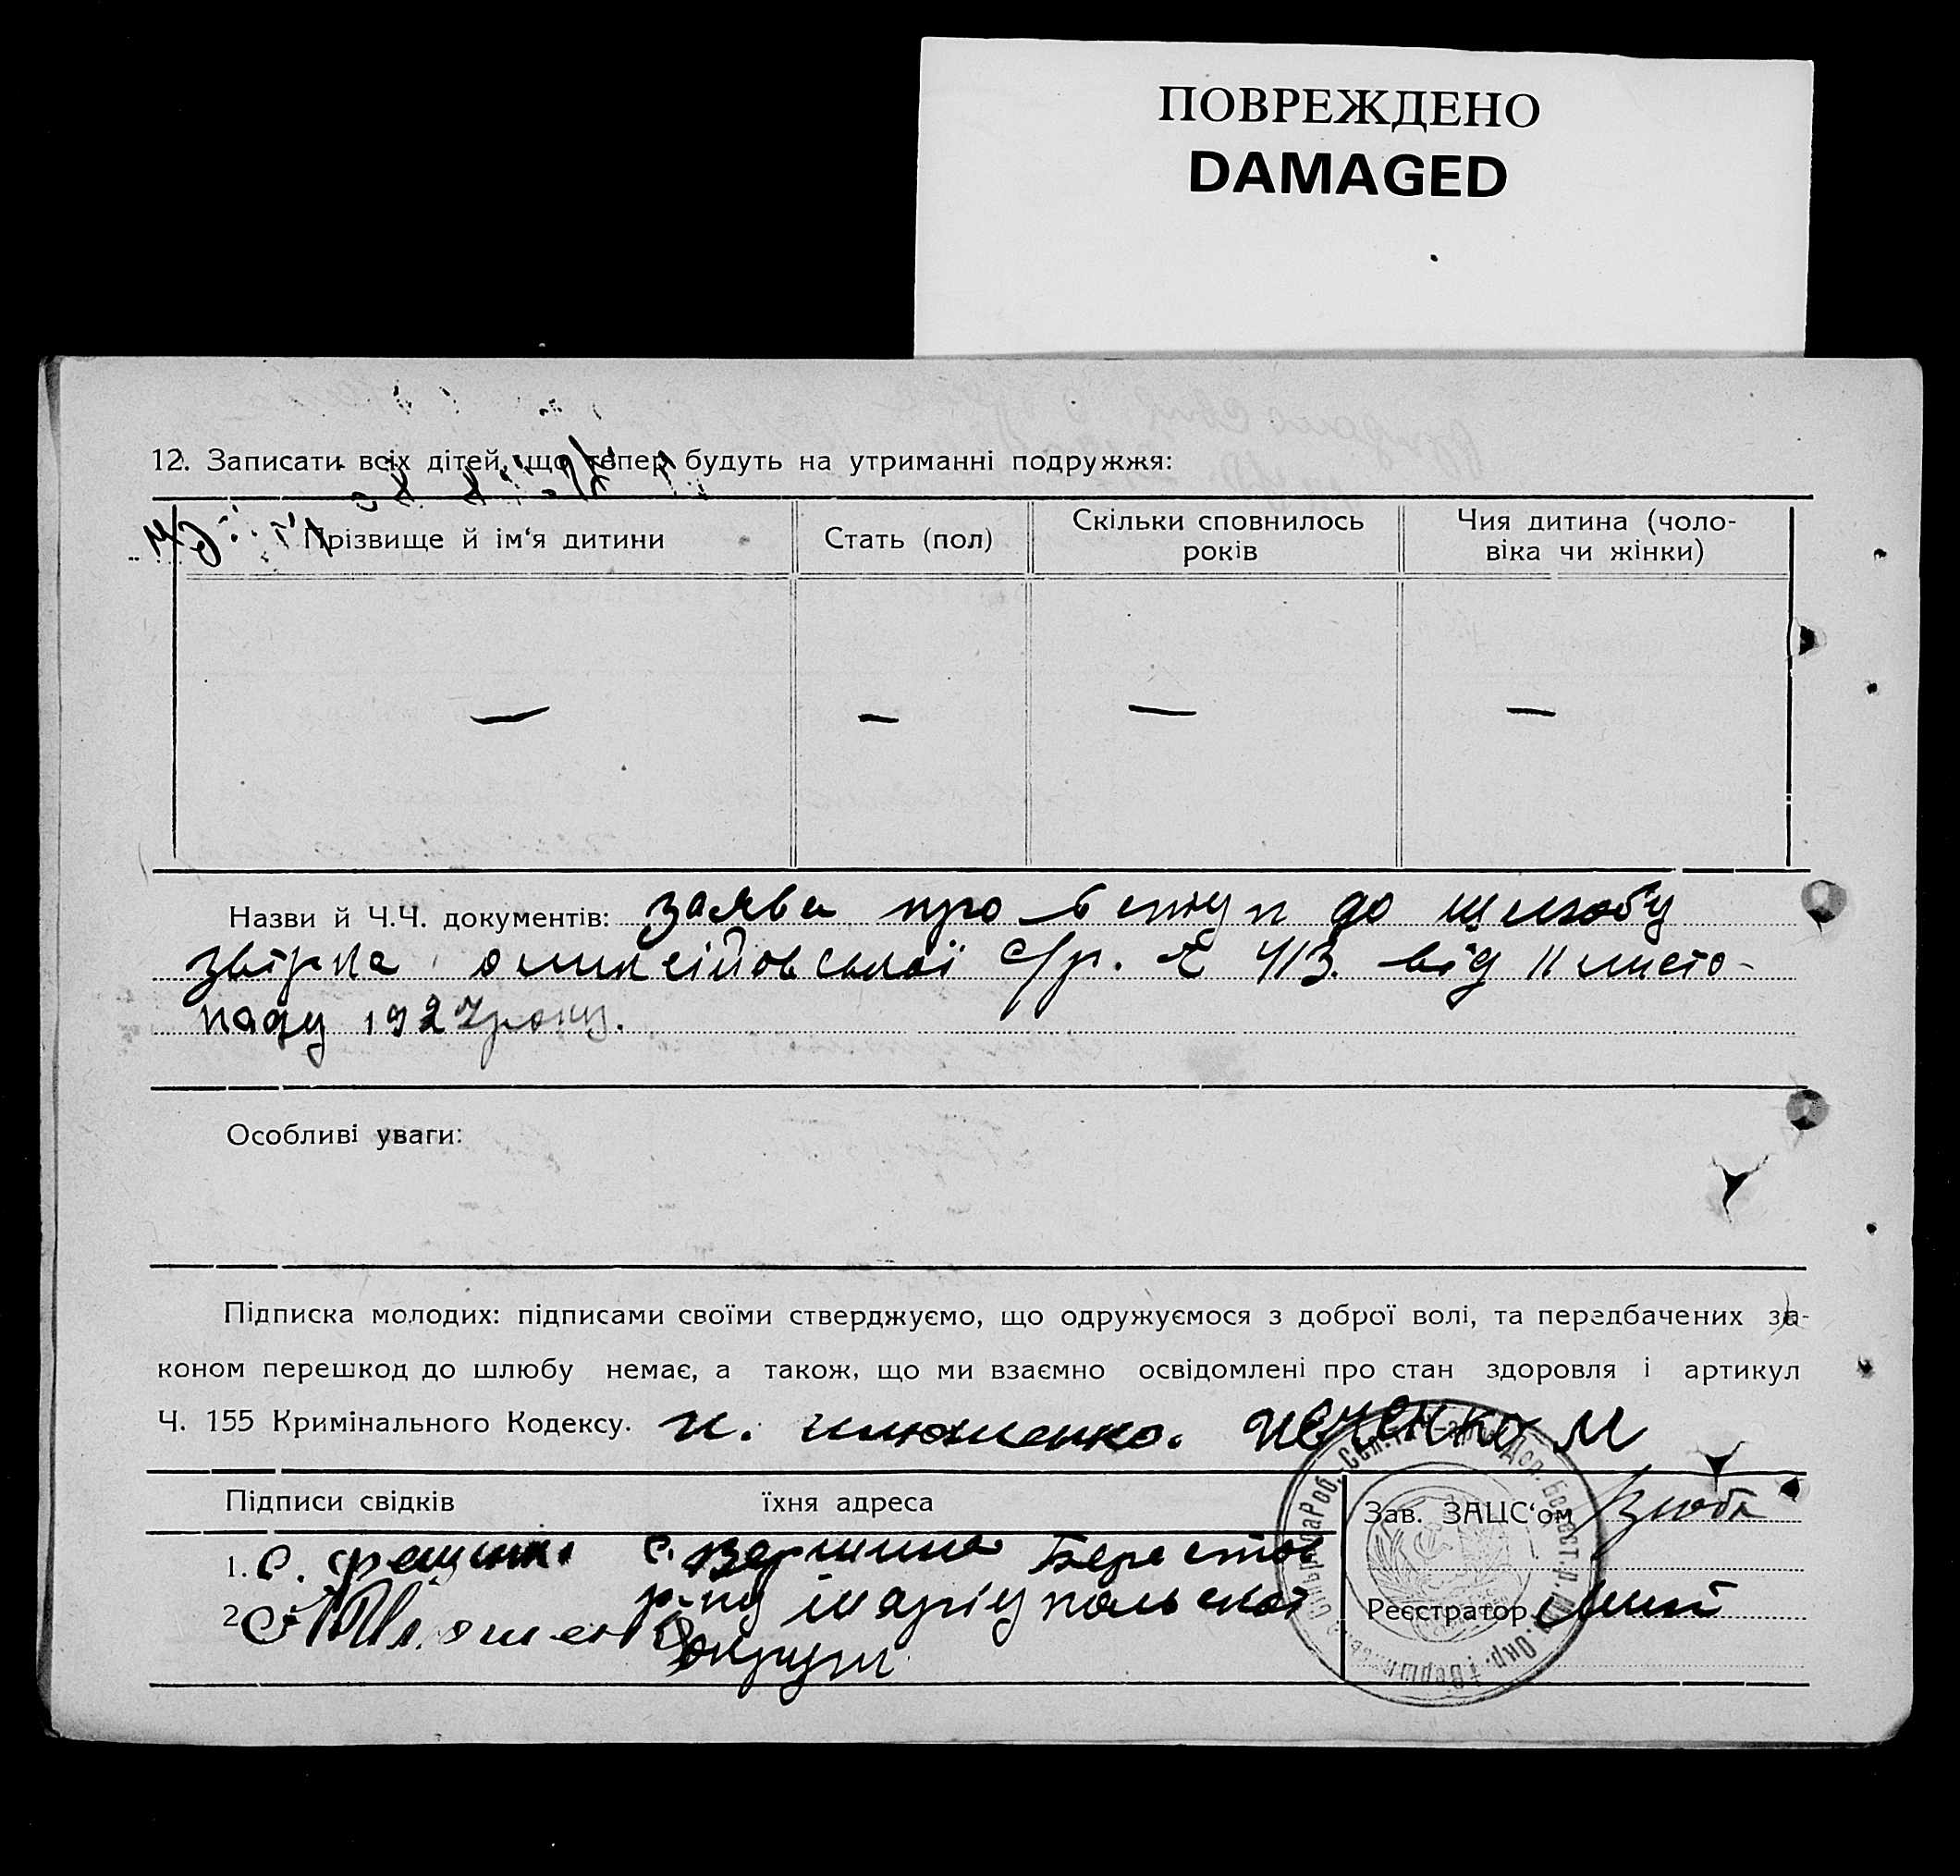 ПОВРЕЖДЕНО
DAMAGED
12. Записати всіх дітей, що тепер будуть на утриманні подружжя:
Прізвище й ім‘я дитини
Стать (пол)
Скільки сповнилось
років
Чия дитина (чоло-
віка чи жінки)
— — — —
Назви й Ч.Ч. документів: заява про вступ до шлюбу
звірка олексійовської с/р. № 413. від 11 листо-
паду 1927 року.
Особливі уваги:
Підписка молодих: підписами своїми стверджуємо, що одружуємося з доброї волі, та передбачених за-
коном перешкод до шлюбу немає, а також, що ми взаємно освідомлені про стан здоровля і артикул
Ч. 155 Кримінального Кодексу. Ілюшенко. Иеченко М
Підписи свідків
їхня адреса
Зав. ЗАЦС‘ом
1. С. с. Вершина Берестов
р-ну Маріупольської
Реєстратор
2. округи